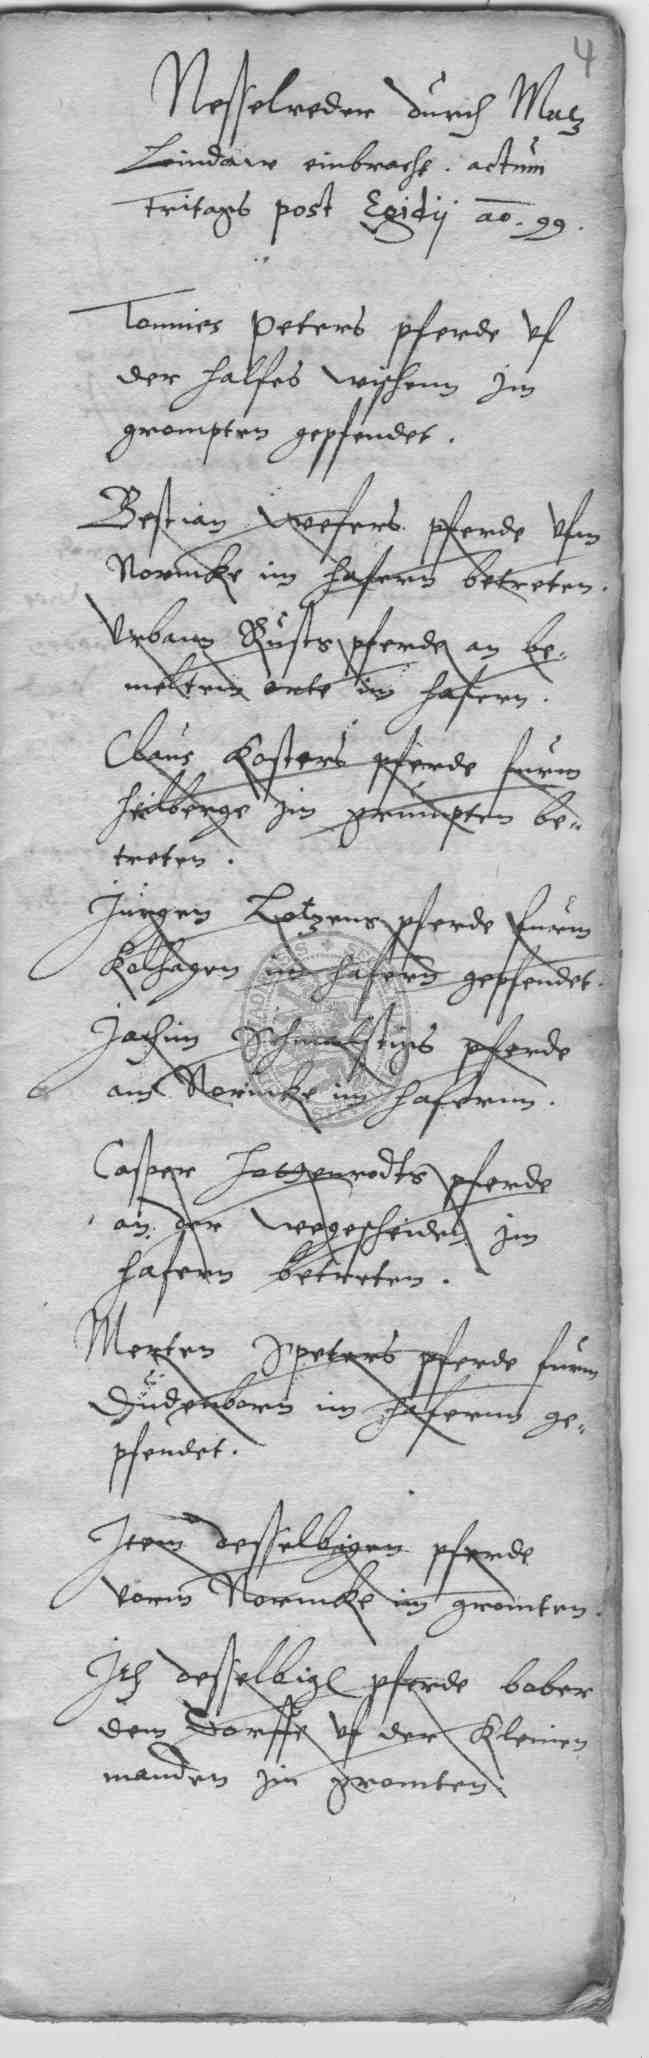 4
Nesselreder durch Matz
Lindaw einbracht. actum
Fritags post Egidij ao. 99.
Tonnies Peters pferde vf
der halfes wischenn im
grompten gepfendet.
Bestian Wefers pferde vfm
Normcke im hafern betreten.
Vrbann Rusts pferde an be-
meltem orte im hafern.
Claus Kosters pferde furm
heilberge im grumpten be-
treten.
Jurgen Lotzens pferde furm
Kolhagen im hafern gepfendet.
Jochim Schmalstigs pferde
am Normcke im hafernn.
Casper Hotzenrodts pferde
an der wegescheiden im
hafern betreten.
Merten Peters pferde furm
Dudenborn im hafernn ge-
pfendet.
Item desselbigen pferde
vorm Normcke im gromten.
Itz desselbigl pferde bober
dem Dorffe vf der Kleinen
manden im gromten.